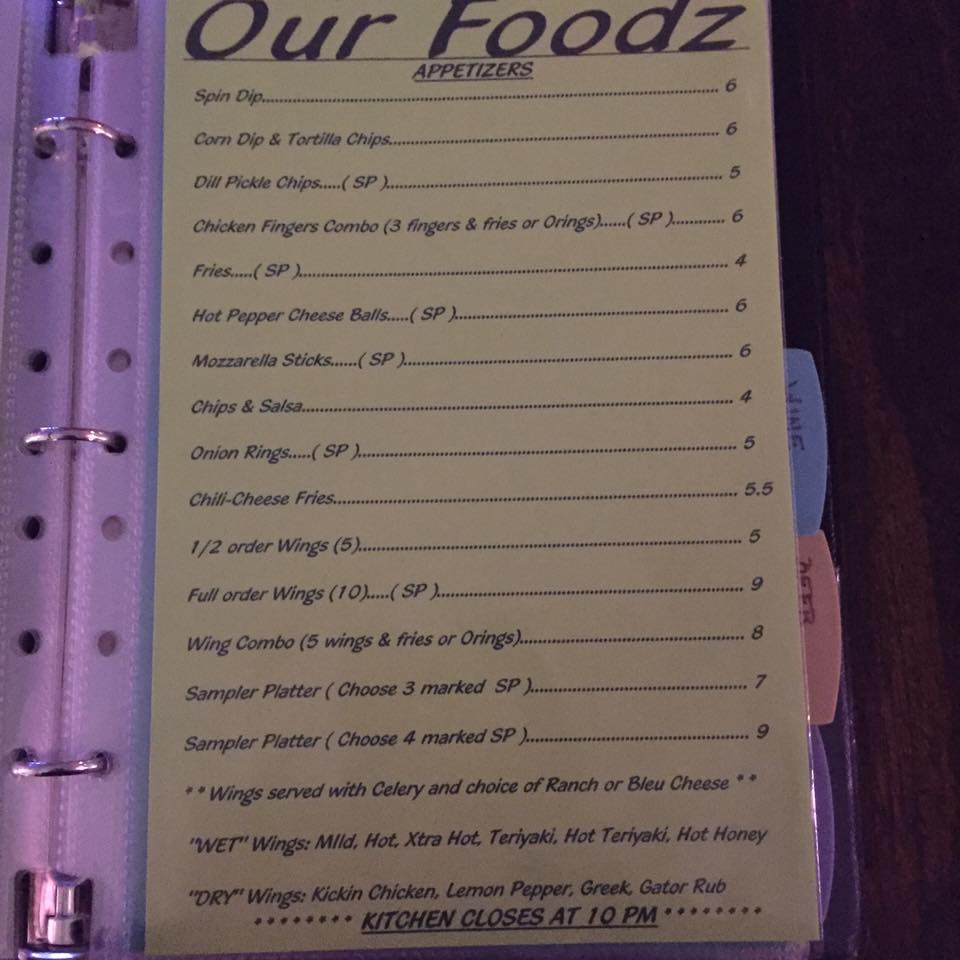 Our Foodz
APPETIZERS
Spin Dip........................................................................................ 6
Corn Dip & Tortilla Chips................................................................ 6
Dill Pickle Chips.....( SP )................................................................ 5
Chicken Fingers Combo (3 fingers & fries or Orings)......( SP )............ 6
Fries.....( SP )................................................................................ 4
Hot Pepper Cheese Balls.....( SP ).................................................... 6
Mozzarella Sticks......( SP )............................................................. 6
Chips & Salsa................................................................................ 4
Onion Rings.....( SP )...................................................................... 5
Chili-Cheese Fries.......................................................................... 5.5
1/2 order Wings (5)....................................................................... 5
Full order Wings (10).....( SP ).......................................................... 9
Wing Combo (5 wings & fries or Orings).......................................... 8
Sampler Platter ( Choose 3 marked SP )......................................... 7
Sampler Platter ( Choose 4 marked SP )......................................... 9
**Wings served with Celery and choice of Ranch or Bleu Cheese **
"WET" Wings: Mild, Hot, Xtra Hot, Teriyaki, Hot Teriyaki, Hot Honey
"DRY" Wings: Kickin Chicken, Lemon Pepper, Greek, Gator Rub
******** KITCHEN CLOSES AT 10 PM ********
WINE
BEER